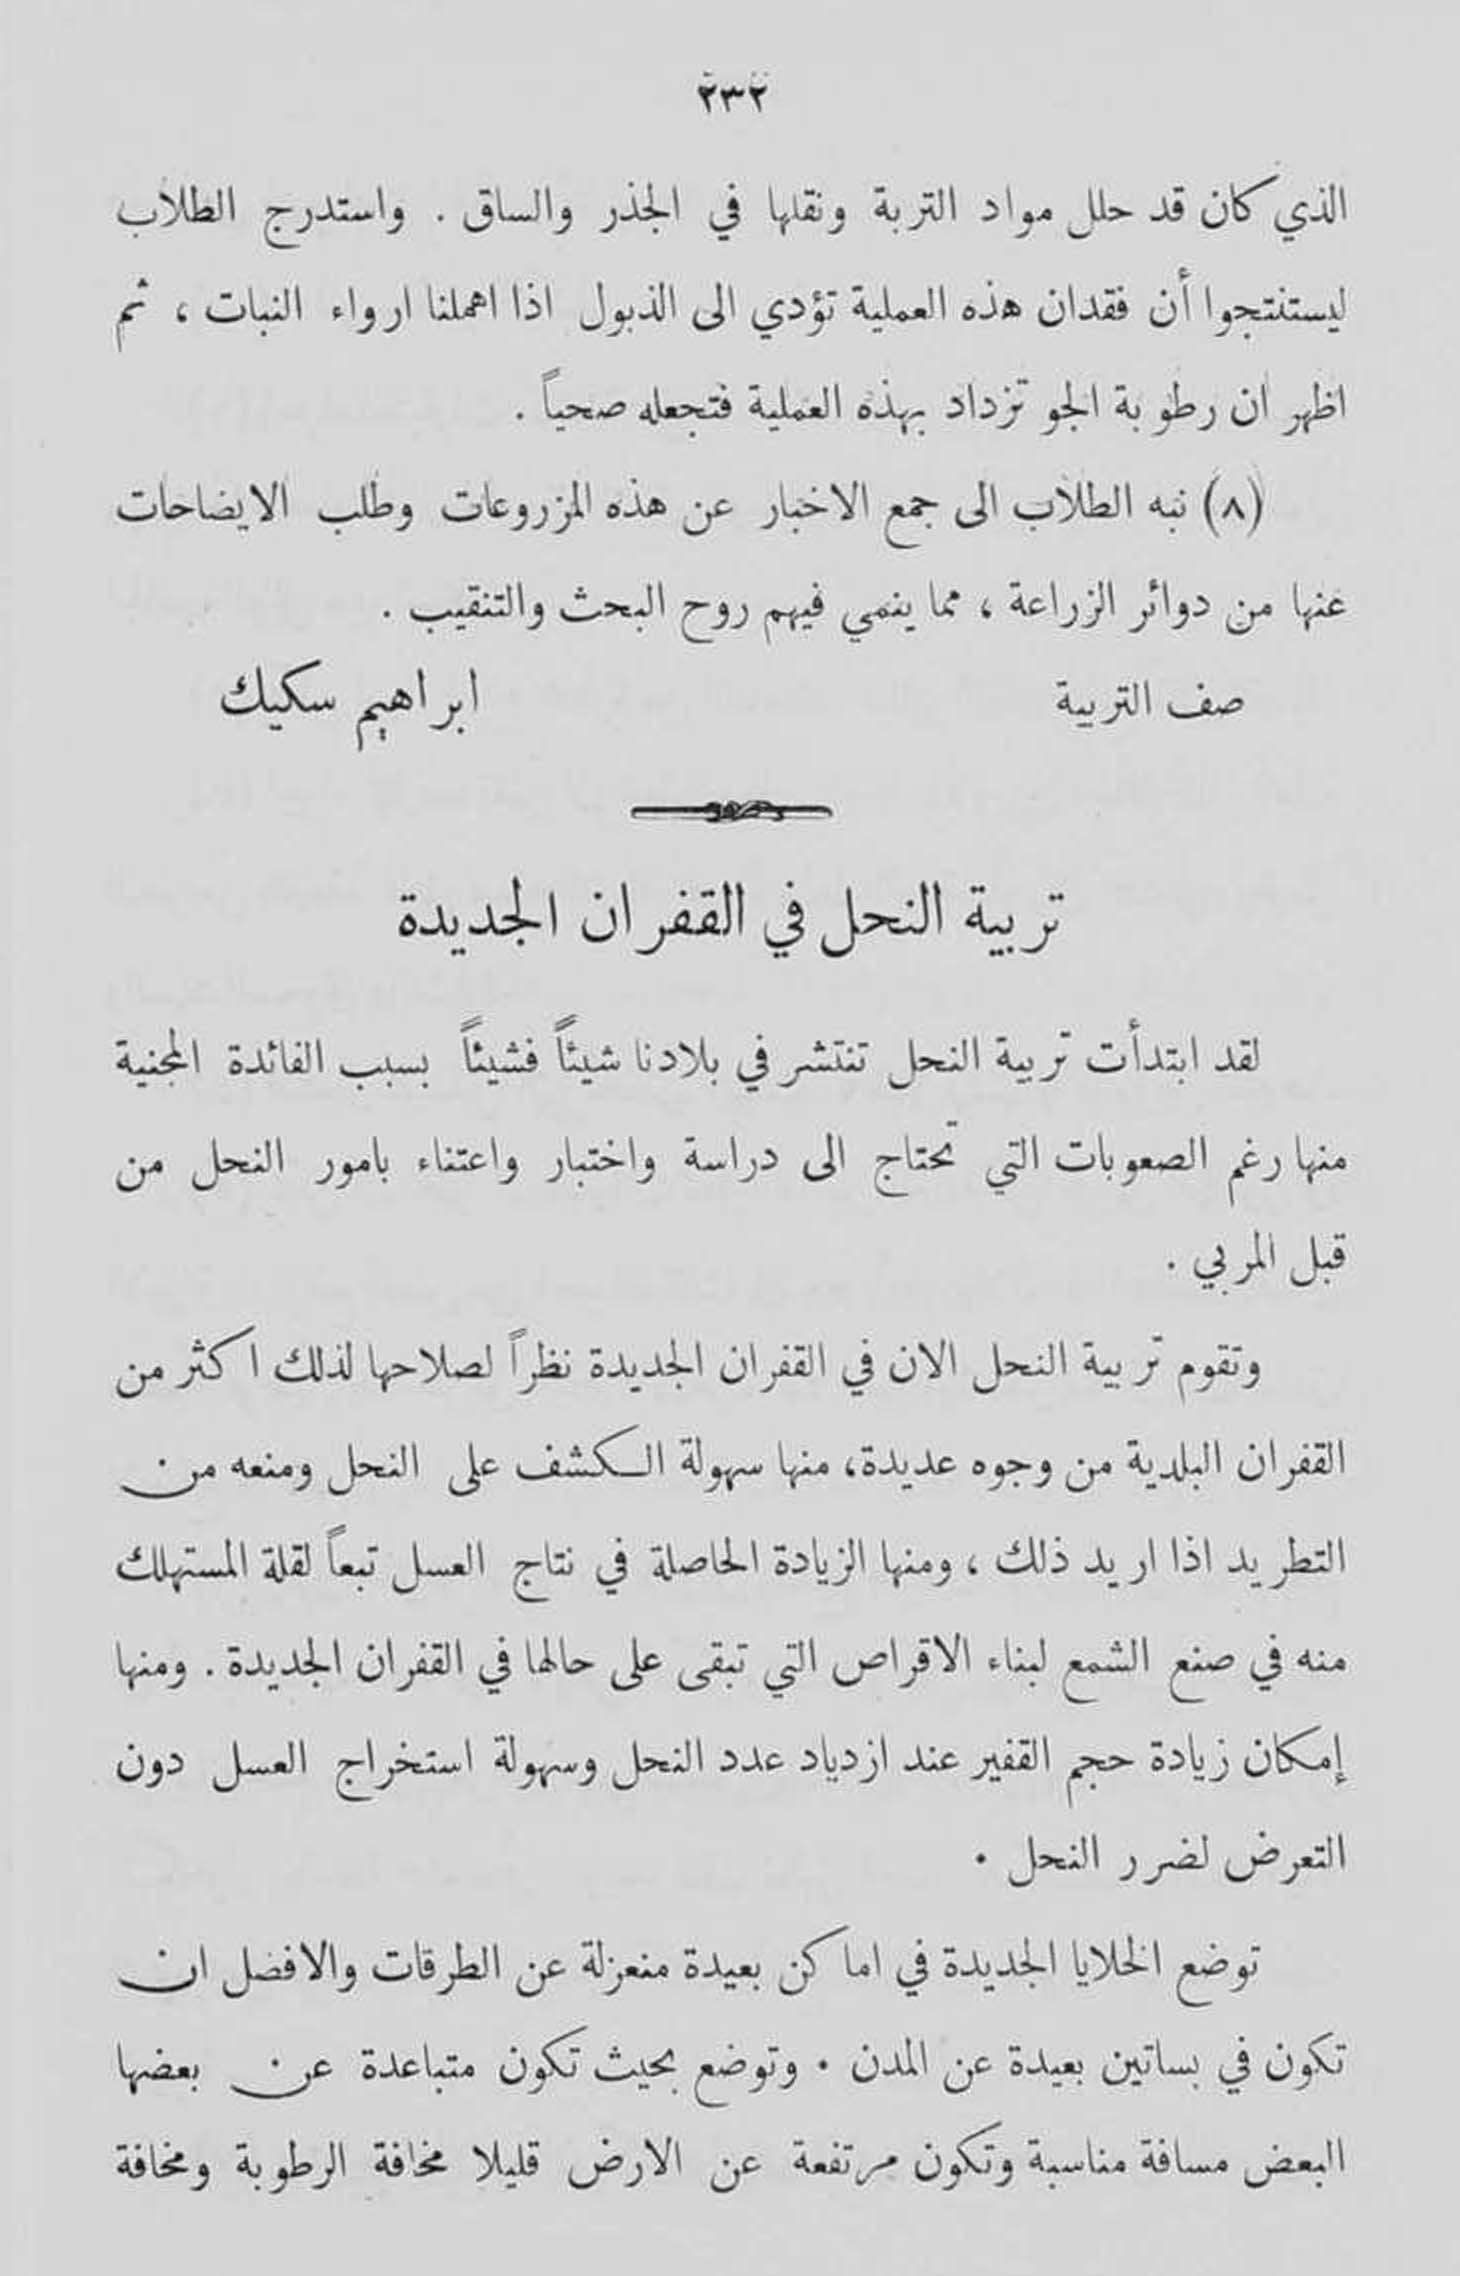 ٢٣٢
الذي كان قد حلل مواد التربة ونقلها في الجذر والساق . واستدرج الطلاب
ليستنتجوا أن فقدان هذه العملية تؤدي الى الذبول اذا اهملنا ارواء النبات ، ثم
اظهر ان رطوبة الجو تزداد بهذه العملية فتجعله صحياً .
(٨) نبه الطلاب الى جمع الاخبار عن هذه المزروعات وطلب الايضاحات
عنها من دوائر الزراعة ، مما ينمي فيهم روح البحث والتنقيب .
صف التربية ابراهيم سكيك
تربية النحل في القفران الجديدة
لقد ابتدأت تربية النحل تنتشر في بلادنا شيئاً فشيئاً بسبب الفائدة المجنية
منها رغم الصعوبات التي تحتاج الى دراسة واختبار واعتناء بامور النحل من
قبل المربي .
وتقوم تربية النحل الان في القفران الجديدة نظراً لصلاحها لذلك اكثر من
القفران البلدية من وجوه عديدة، منها سهولة الكشف على النحل ومنعه من
التطريد اذا اريد ذلك ، ومنها الزيادة الحاصلة في نتاج العسل تبعاً لقلة المستهلك
منه في صنع الشمع لبناء الاقراص التي تبقى على حالها في القفران الجديدة . ومنها
إمكان زيادة حجم القفير عند ازدياد عدد النحل وسهولة استخراج العسل دون
التعرض لضرر النحل .
توضع الخلايا الجديدة في اماكن بعيدة منعزلة عن الطرقات والافضل ان
تكون في بساتين بعيدة عن المدن . وتوضع بحيث تكون متباعدة عن بعضها
البعض مسافة مناسبة وتكون مرتفعة عن الارض قليلا مخافة الرطوبة ومخافة